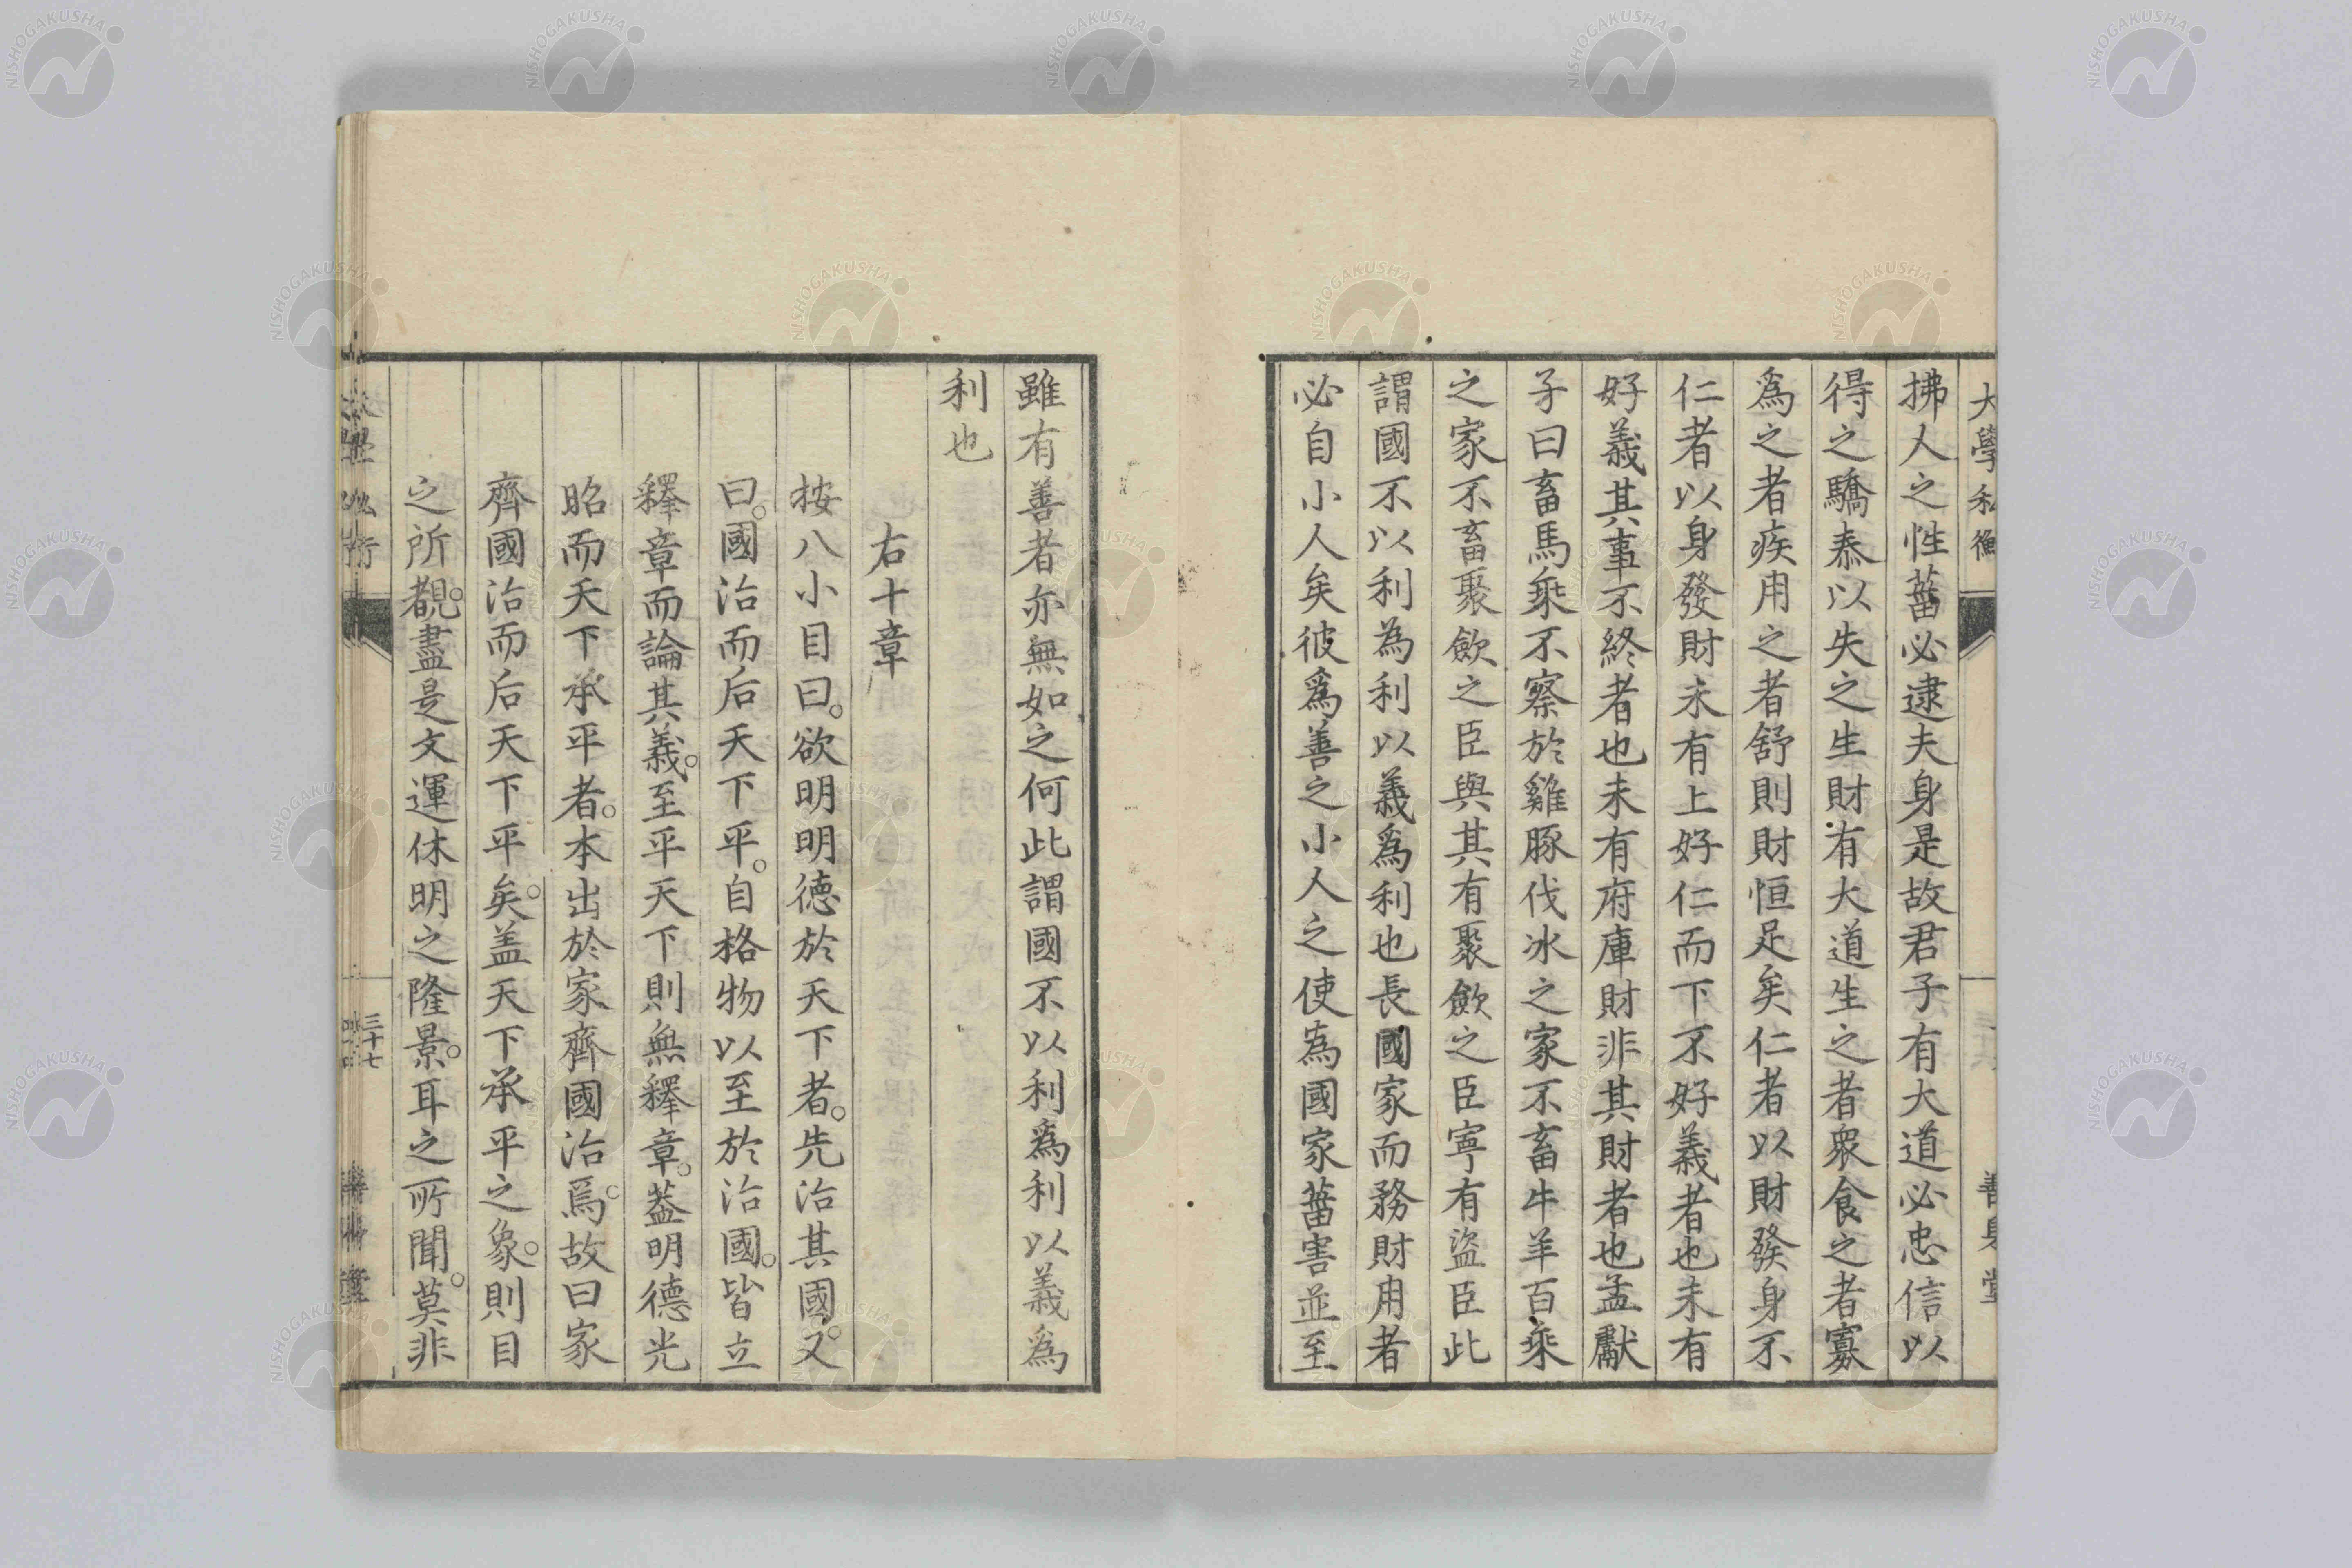 大學私衡
善身堂
拂人之性菑必逮夫身是故君子有大道必忠信以
得之驕泰以失之生財有大道生之者衆食之者寡
爲之者疾用之者舒則財恒足矣仁者以財發身不
仁者以身發財未有上好仁而下不好義者也未有
好義其事不終者也未有府庫財非其財者也孟獻
子曰畜馬乘不察於雞豚伐冰之家不畜牛羊百乘
之家不畜聚歛之臣與其有聚歛之臣寧有盜臣此
謂國不以利為利以義爲利也長國家而務財用者
必自小人矣彼爲善之小人之使為國家菑害並至
雖有善者亦無如之何此謂國不以利爲利以義爲
利也
右十章
按八小目曰。欲明明德於天下者。先治其國。又
曰。國治而后天下平。自格物以至於治國。皆立
釋章而論其義。至平天下則無釋章。葢明德光
昭而天下承平者。本出於家齊國治焉。故曰家
齊國治而后天下平矣。盖天下承平之象。則目
之所覩。盡是文運休明之隆景。耳之所聞。莫非
三十七
NISHOGAKUSHA